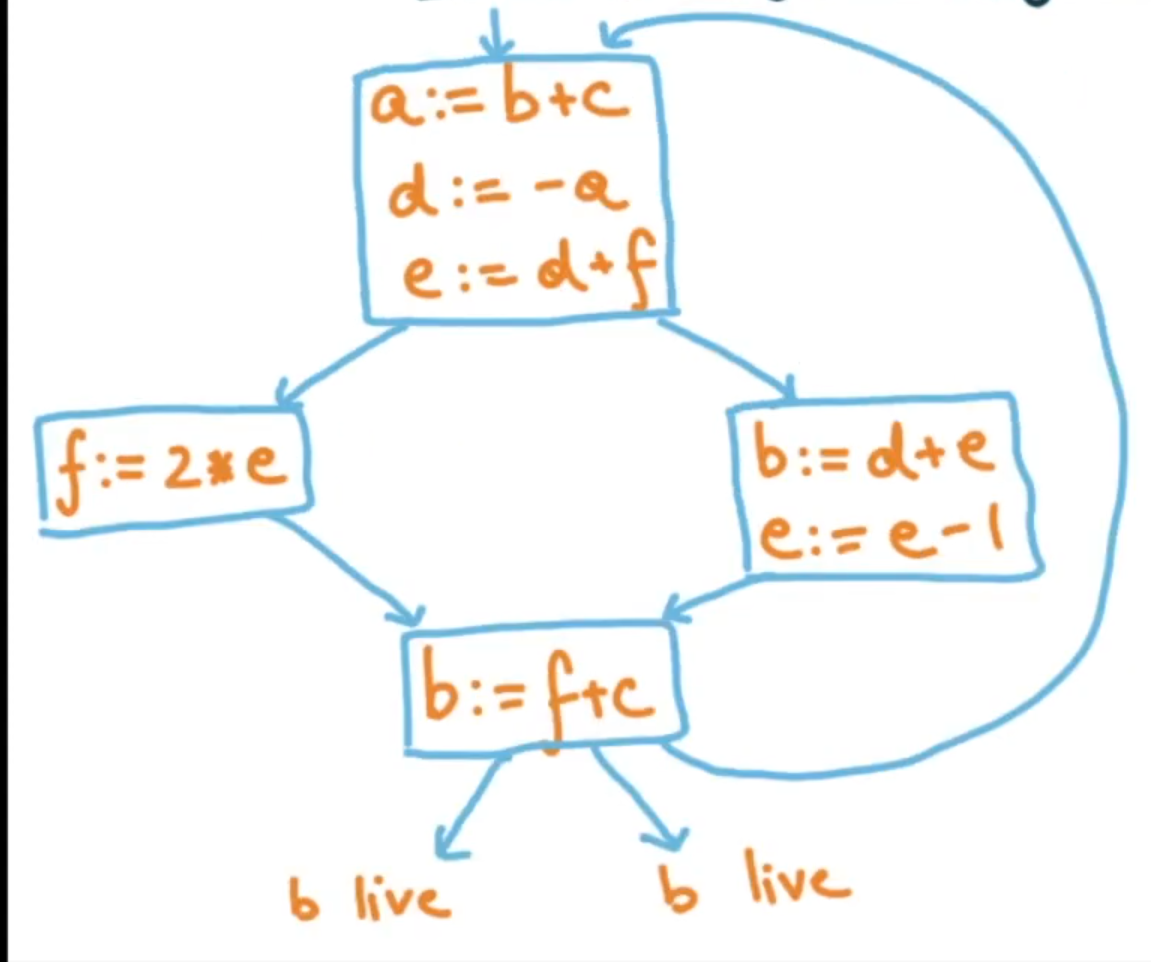 a:= b+c
d:= -a
e:= d+f
f:= 2*e
b:= d+e
e:= e-1
b:= f+c
b live
b live